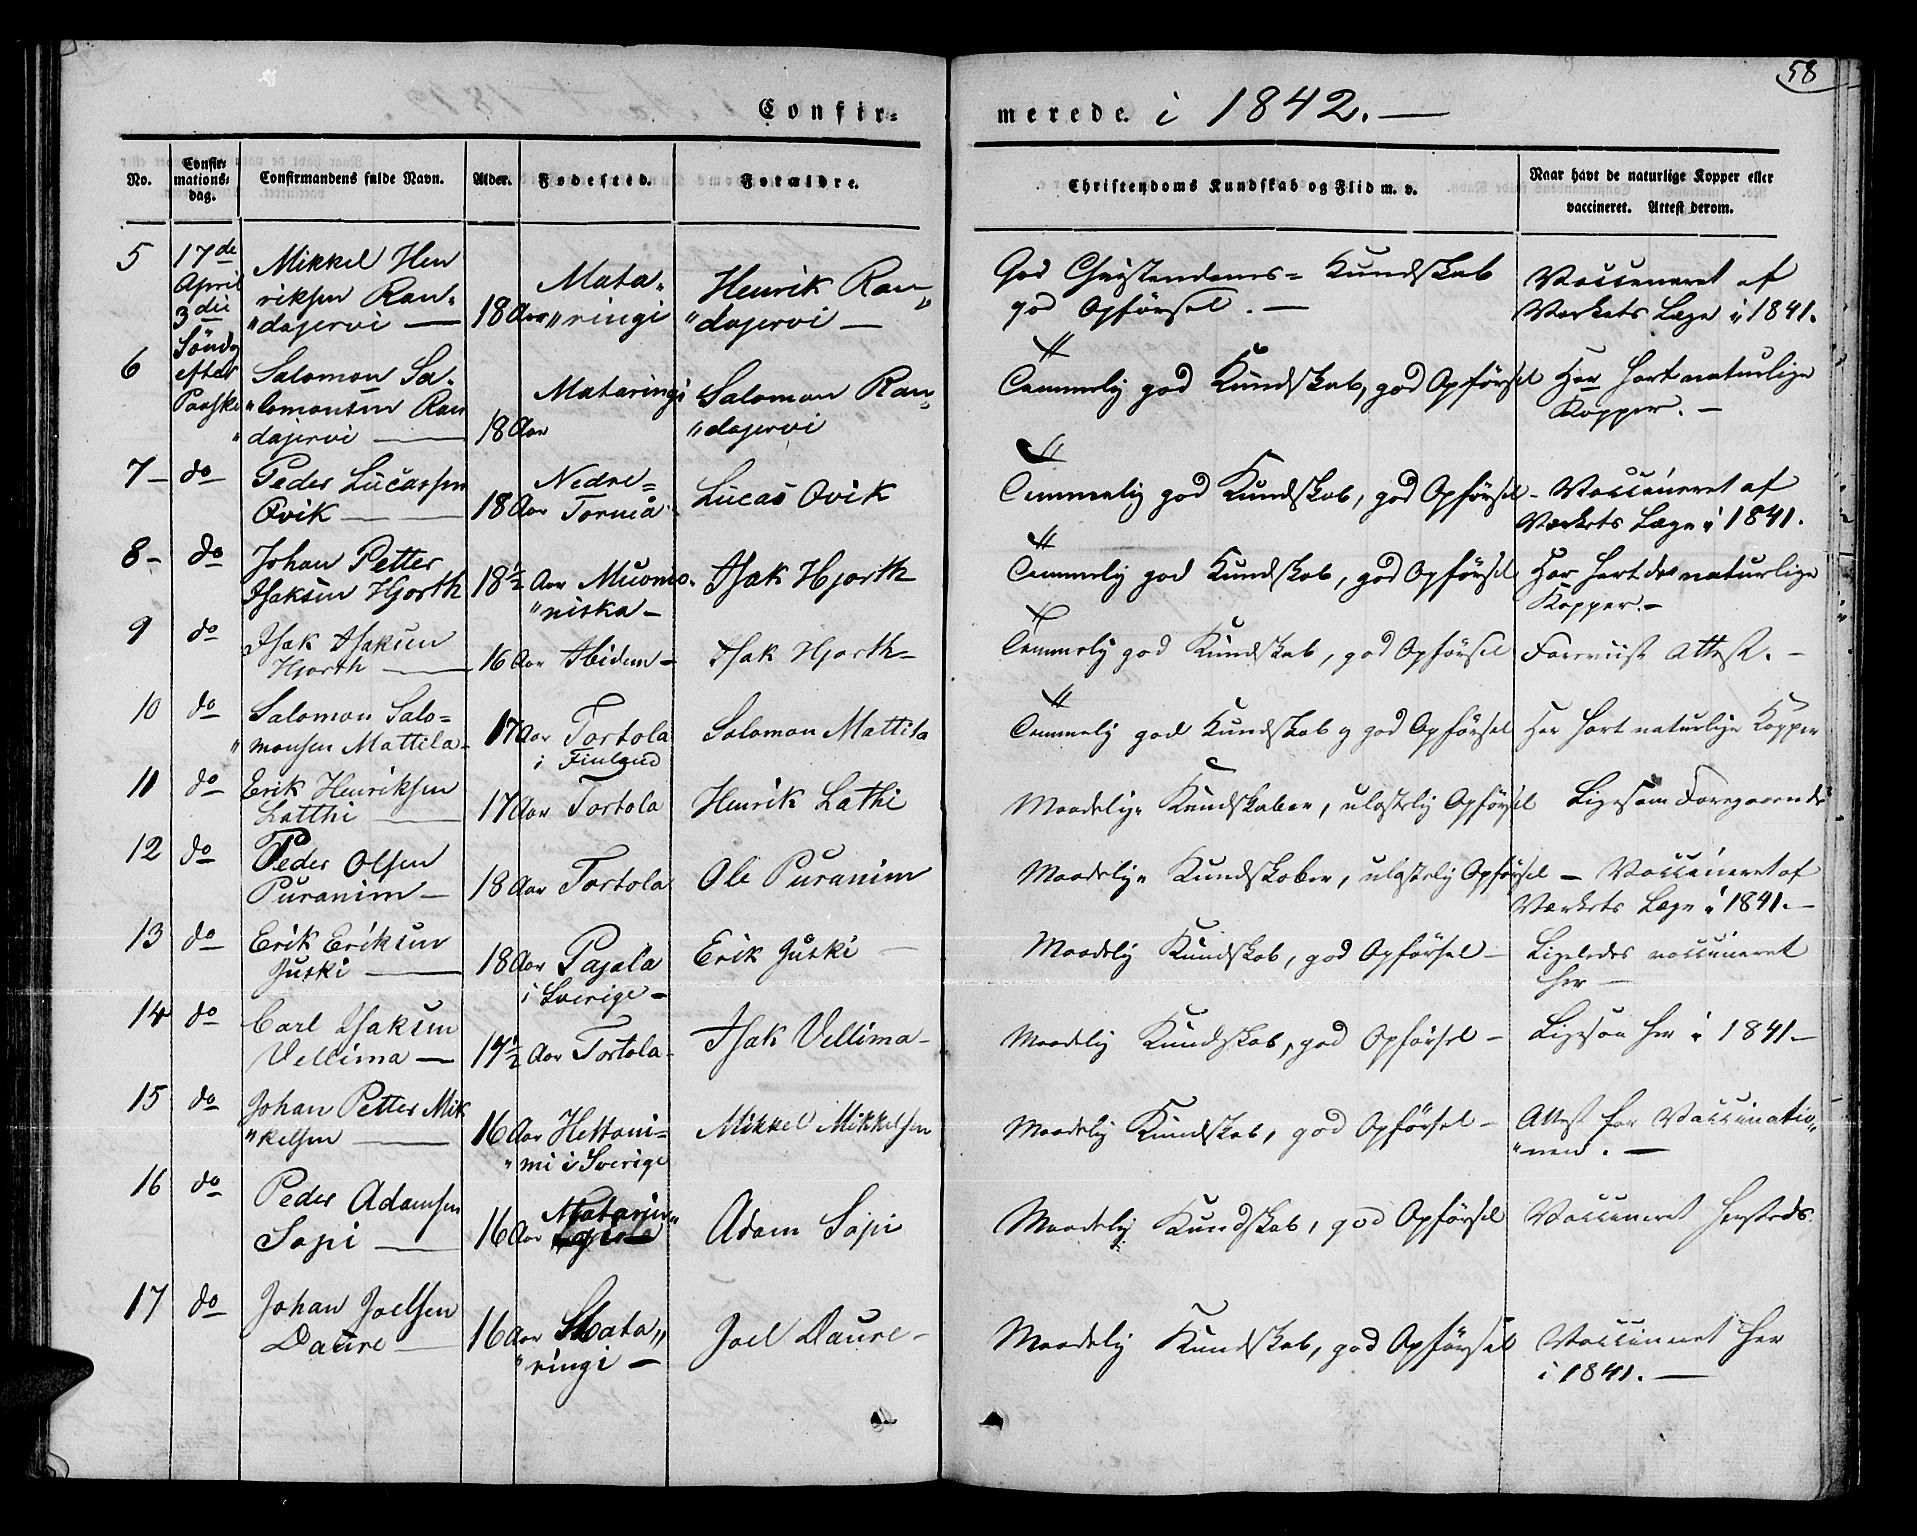 58
Confirmerede. i 1842. —
No. Confirmationsdag. Confirmandens fulde Navn. Alder. Fødested. Forældre. Christendoms Kundskab og Flid m. v. Naar havt de naturlige Kopper eller vaccineret. Attest derom.
5 17de April 3die Søndg efter Paaske Mikkel Hen
riksen Ran„
„dajervi — 18 Aar Mata„
„ringi Henrik Ran„
„dajervi — God Christendoms= Kundskab
god Opførsel. — Vaccineret af
Værkets Læge i 1841.
6 Salomon Sa„
„lomonsen Ran
„dajervi — 18 Aar Mataringi Salomon Ran„
„dajervi Temmelig god Kundskab, god Opførsel Har havt naturlige
Kopper. —
7 — do Peder Lucassen
Qvik — 18 Aar Nedre=
Torneå Lucas Qvik Temmelig god Kundskab, god Opførsel — Vaccineret af
Værkets Læge i 1841.
8 — do Johan Petter
Isaksen Hjorth 18½ Aar Muonio„
„niska — Isak Hjorth Temmelig god Kundskab, god Opførsel Har havt de naturlige
Kopper. —
9 do Isak Isaksen
Hjorth — 16 Aar Ibidem — Isak Hjorth — Temmelig god Kundskab, god Opførsel Foreviist Attest. —
10 do Salomon Salo=
„monsen Mattila 17 Aar Tortola
i Finland Salomon Mattila Temmelig god Kundskab og god Opførsel Har havt naturlige Kopper
11 do Erik Henriksen
Latthi — 17 Aar Tortola Henrik Lathi Maadelige Kundskaber, ulastelig Opførsel Ligesom Foregaaende
12 do Peder Olsen
Puranim — 18 Aar Tortola Ole Puranim Maadelige Kundskaber, ulastelig Opførsel — Vaccineret af
Værkets Læge i 1841. —
13 do Erik Eriksen
Juski — 18 Aar Pajala
i Sverige — Erik Juski — Maadelig Kundskab, god Opførsel — Ligeledes vaccineret
her —
14 do Carl Isaksen
Vellima — 17½ Aar Tortola — Isak Vellima — Maadelig Kundskab, god Opførsel — Ligesaa her i 1841 —
15 do Johan Petter Mik
„kelsen — 16 Aar Hettani=
„mi i Sverige Mikkel Mikkelsen Maadelig Kundskab, god Opførsel — Attest for Vaccinatio„
„nen. —
16 do Peder Adamsen
Sopi — 16 Aar Matarin„ Adam Sopi Maadelig Kundskab, god Opførsel Vaccineret hersteds.
17 do Johan Joelsen
Daure — 16 Aar Mata„
„ringi — Joel Daure — Maadelig Kundskab, god Opførsel Vaccineret her
i 1841. —